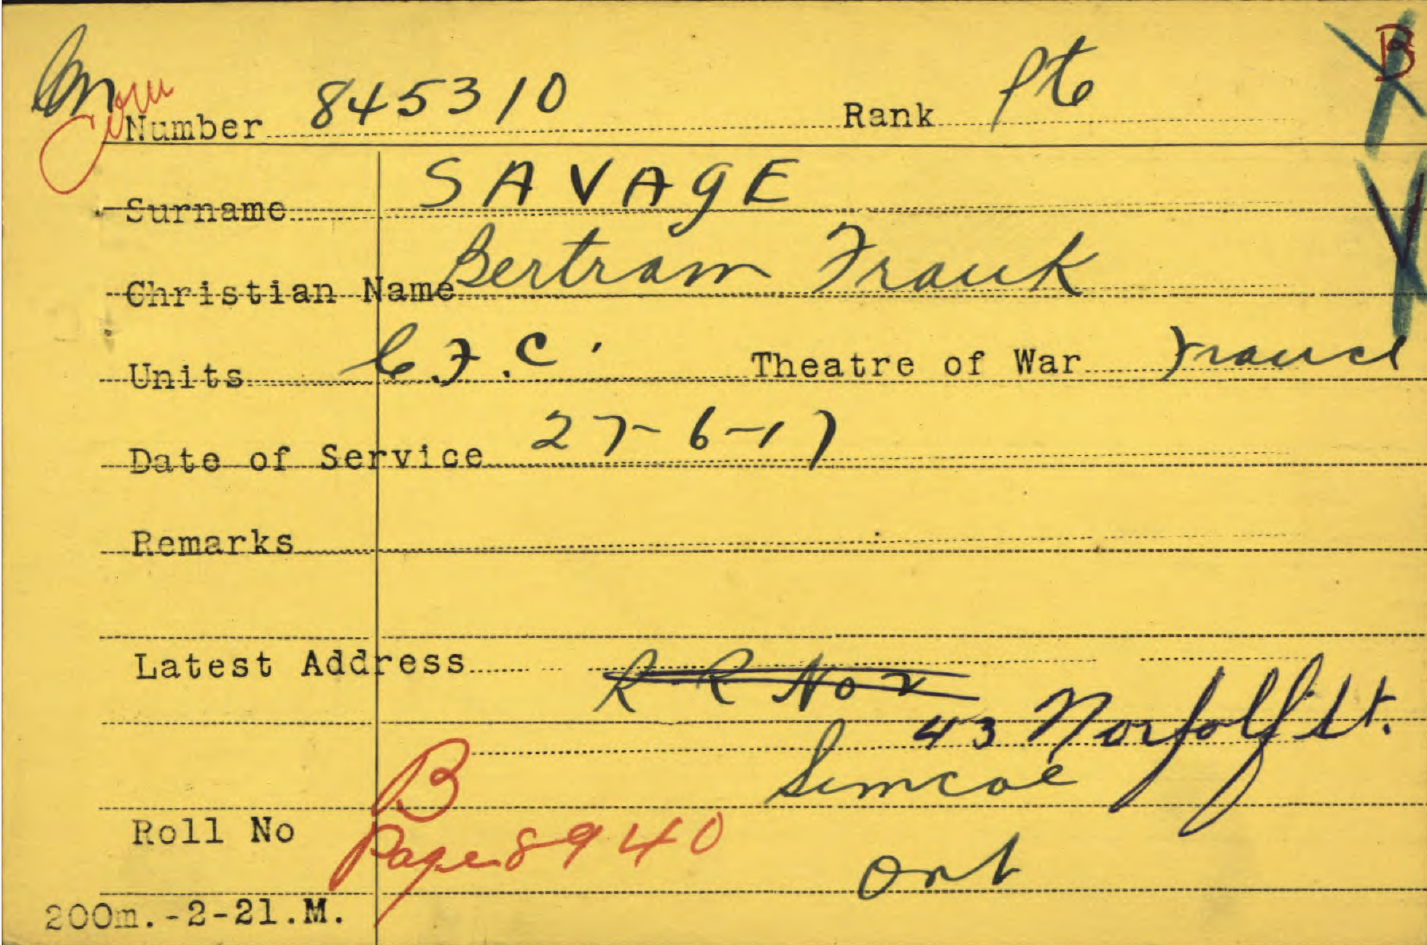 B
Number 845310 Rank Pte
Surname SAVAGE
Christian Name Bertram Frank
Units C.F.C. Theatre of War France
Date of Service 27-6-17
Remarks
Latest Address R R No 2
43 Norfolk St.
Simcoe
Roll No B
Page 8940
Ont
200m.-2-21.M.